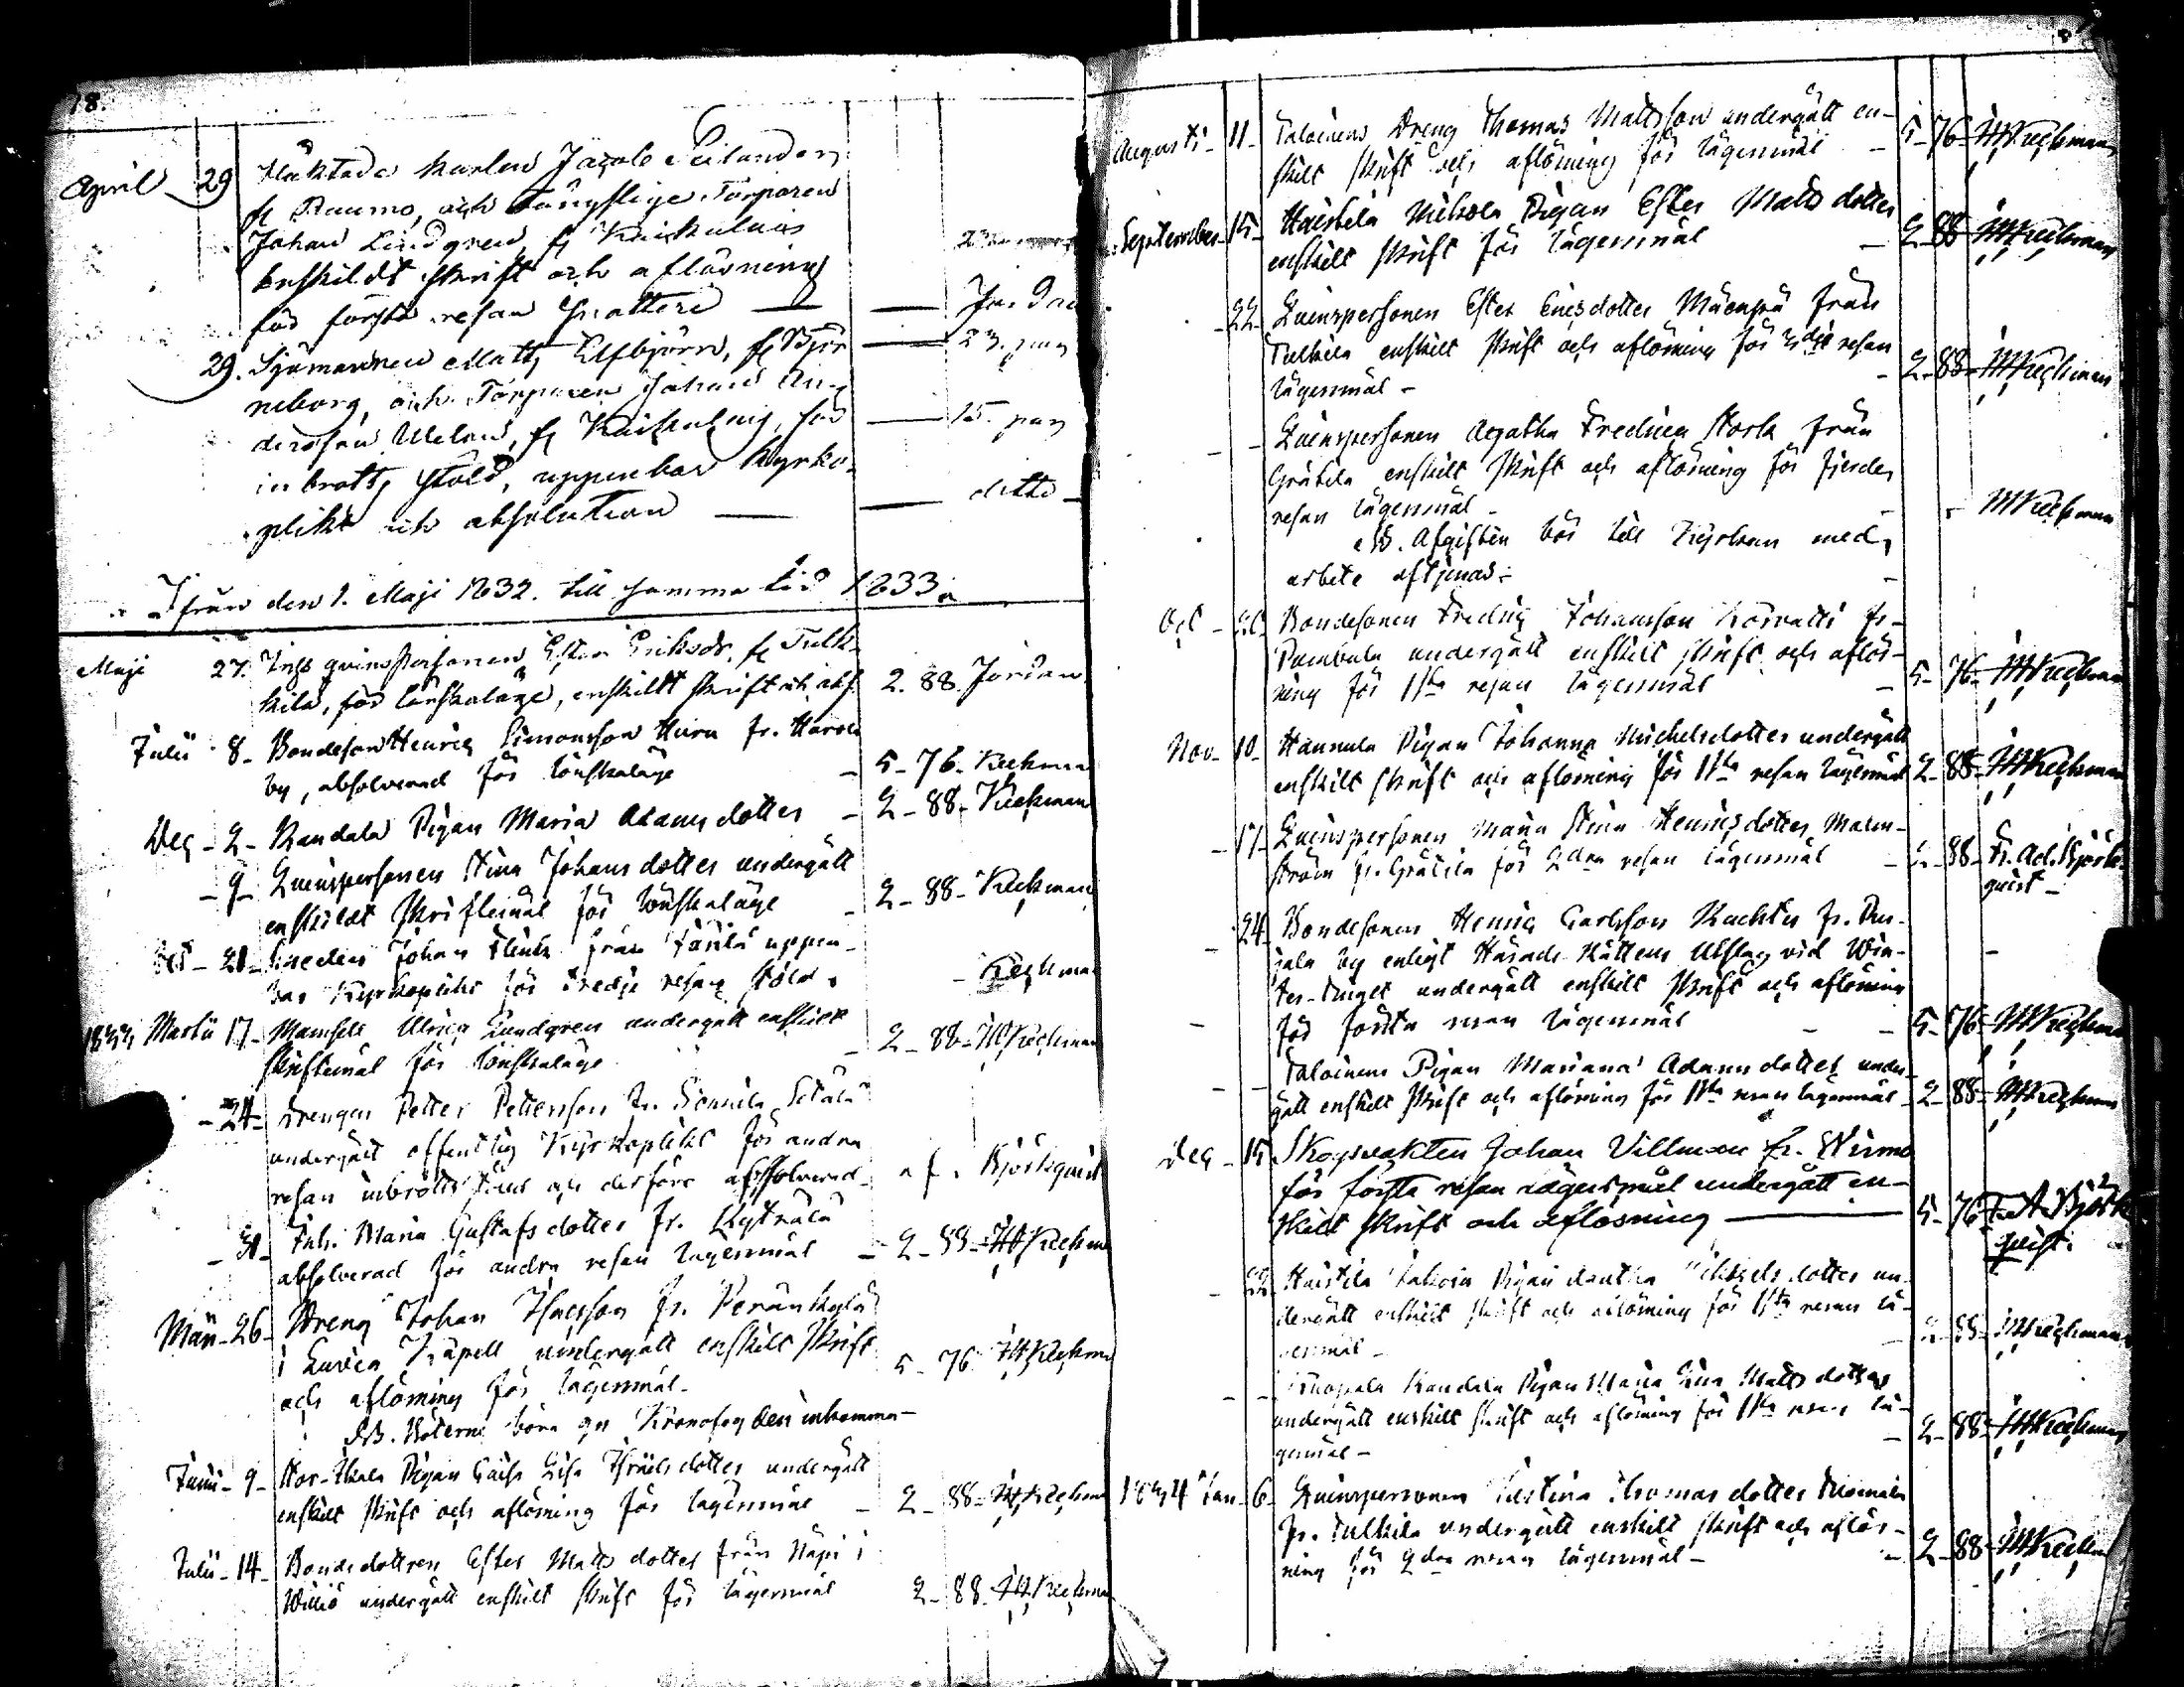 78.
April 29 Häktade karlen Jacob Seilander
fr Raumo, och tångslige Torparen
Johan Lindgren, fr Kaiskulais
Enskildt skrift och aflösning
för första resan snatteri — — Jordan
29. Sjömannen Matts Elfbjörn, fr Björ — 23. pag
neborg, och Torparen Johan An-
dersson Ulelan, fr Kaiskulais, för — 15. pag
inbrotts stöld, uppenbar kyrko-
plikt och absolution — — ditto —
Ifrån den 1. Maji 1832. till samma tid 1833.
Maji 27. Inhs qvinspersonen Ester Eriksdr, fr Tulk-
kila, för lönskaläge, enskildt skrift och abs. 2. 88. Jordan
Julii 8. Bondeson Henric Simonsson Hura fr. Harola
by, absolverad för lönskaläge – 5 - 76. Keckman
Dec - 2 - Randala Pigan Maria Adams dotter – 2 - 88 - Keckman
- 9 - Quinspersonen Stina Johans dotter undergått
enskildt skriftemål för lönskaläge – 2 - 88 - Keckman
- 21 - Smeden Johan Flink från uppen-
bar Kyrkoplikt för tredje resan stöld. – Keckman
1833 Martii 17 - Mamsell Ulrica Lundgren undergått enskilt
skriftemål för lönskaläge – 2 - 88 - M Keckman
- 24 - Drengen Petter Pettersson fr. Sonnila
undergått offentlig Kyrkoplikt för andra
resan inbrotts stöld och derföre absolverad. af. Björkqvist
- 31 - Inh. Maria Gustafs dotter fr. Kyträlä
absolverad för andra resan lägersmål – 2 - 88 - M Keckman
Maii - 26 - Dreng Johan Isacsson fr. Peränkylä
i Luvia Kapell undergått enskilt skrift
och aflösning för lägersmål. 5 - 76 M Keckman
NB. Böterne böra gn Kronofogden inkomma –
Junii - 9 - Stor-Ikala Pigan Caisa Lisa Israels dotter undergått
enskilt skrift och aflösning för lägersmål – 2 - 88 - M Keckman
Julii - 14 - Bondedottren Ester Matts dotter från Näpi i
Williö undergått enskilt skrift för lägersmål 2 - 88 - M Keckman
Augusti - 11 - Taloinens Dreng Thomas Mattsson undergått en-
skilt skrift och aflösning för lägersmål – 5 - 76 - M Keckman
September - 15 - Haistila Mickola Pigan Ester Matts dotter
enskilt skrift för lägersmål – 2 - 88 - M Keckman
- 22 - Quinspersonen Ester Ericsdotter Mäenpä från
Tulkila enskilt skrift och aflösning för 3dje resan
lägersmål – – 2 - 88 - M Keckman
- - Quinspersonen Agatha Fredrica Stork från
Gråtila enskilt skrift och aflösning för fjerde
resan lägersmål – – M Keckman
NB. Afgiften bör till Kyrkan med
arbete aftjenas. –
Oct - 20 - Bondesonen Fredric Johansson Korvatti fr.
Pambula undergått enskilt skrift och aflös-
ning för 1sta resan lägersmål – 5 - 76 - M Keckman
Nov - 10 - Hannula Pigan Johanna Michelsdotter undergått
enskilt skrift och aflösning för 1sta resan lägersmål 2 - 88 - M Keckman
- 17 - Quinspersonen Maria Stina Henricsdotter Malm-
ström fr. Gråtila för 2dra resan lägersmål – 2 - 88 - Fr. Ad. Björk-
qvist –
- 24 - Bondesonen Henric Carlsson Rachtu fr.
by enligt Härads Rättens Utslag vid Win-
ter-Tinget undergått enskilt skrift och aflösning
för första resan lägersmål – – 5 - 76 - M Keckman
- - Taloinens Pigan Mariana Adams dotter under-
gått enskilt skrift och aflösning för 1sta resan lägersmål - 2 - 88 - M Keckman
Dec - 15 - Skogvakten Johan Villman fr.
för första resan lägersmål undergått en-
skilt skrift och aflösning — 5 - 76 F. A. Björk-
qvist.
- 22 - Haistila Pigan Mickels dotter un-
dergått enskilt skrift och aflösning för 1sta resan lä-
gersmål – – 2 - 88 - M Keckman
- - Randala Pigan Maria Lisa Matts dotter
undergått enskilt skrift och aflösning för 1sta resan lä-
gersmål – – 2 - 88 - M Keckman
1834 Jan - 6 - Quinspersonen Thomas dotter
fr. Tulkila undergått enskilt skrift och aflös-
ning för 2dra resan lägersmål – – 2 - 88 - M Keckman